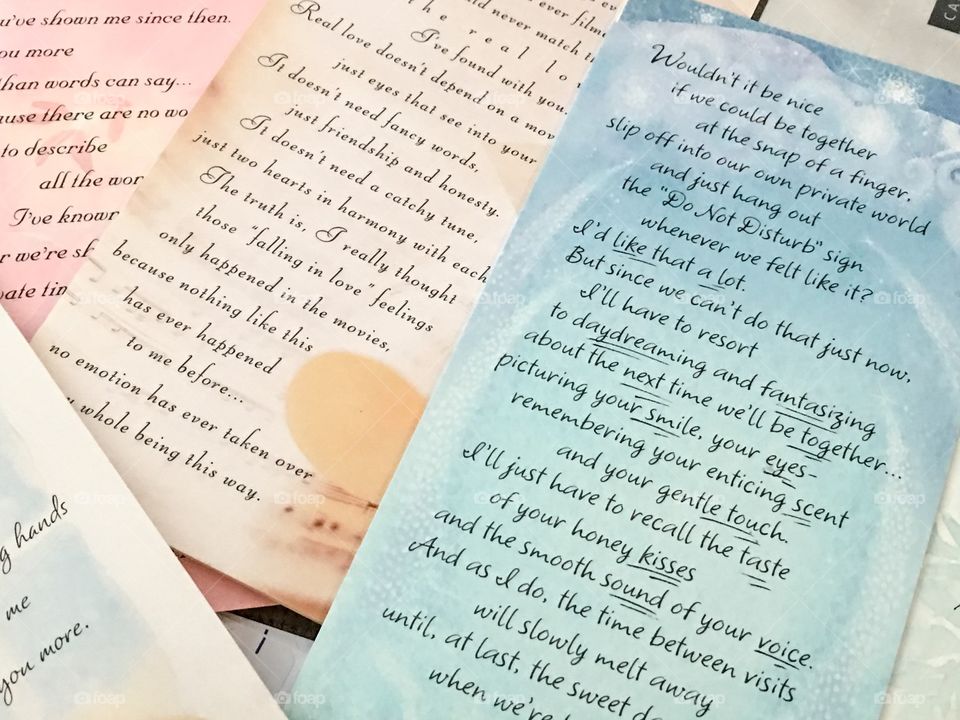 u've shown me since then.
ou more
han words can say...
ause there are no wo
to describe
all the wor
I've know
r we're sh
vate tim
ever film
uld never match t
the real lo
I've found with you.
Real love doesn't depend on a mov
just eyes that see into your
It doesn't need fancy words,
just friendship and honesty.
It doesn't need a catchy tune,
just two hearts in harmony with each
The truth is, I really thought
those "falling in love" feelings
only happened in the movies,
because nothing like this
has ever happened
to me before...
no emotion has ever taken over
whole being this way.
Wouldn't it be nice
if we could be together
at the snap of a finger,
slip off into our own private world
and just hang out
the "Do Not Disturb" sign
whenever we felt like it?
I'd like that a lot.
But since we can't do that just now,
I'll have to resort
to daydreaming and fantasizing
about the next time we'll be together...
picturing your smile, your eyes-
remembering your enticing scent
and your gentle touch.
I'll just have to recall the taste
of your honey kisses
and the smooth sound of your voice.
And as I do, the time between visits
will slowly melt away
until, at last, the sweet d
when we're
g hands
me
you more.
i
CA